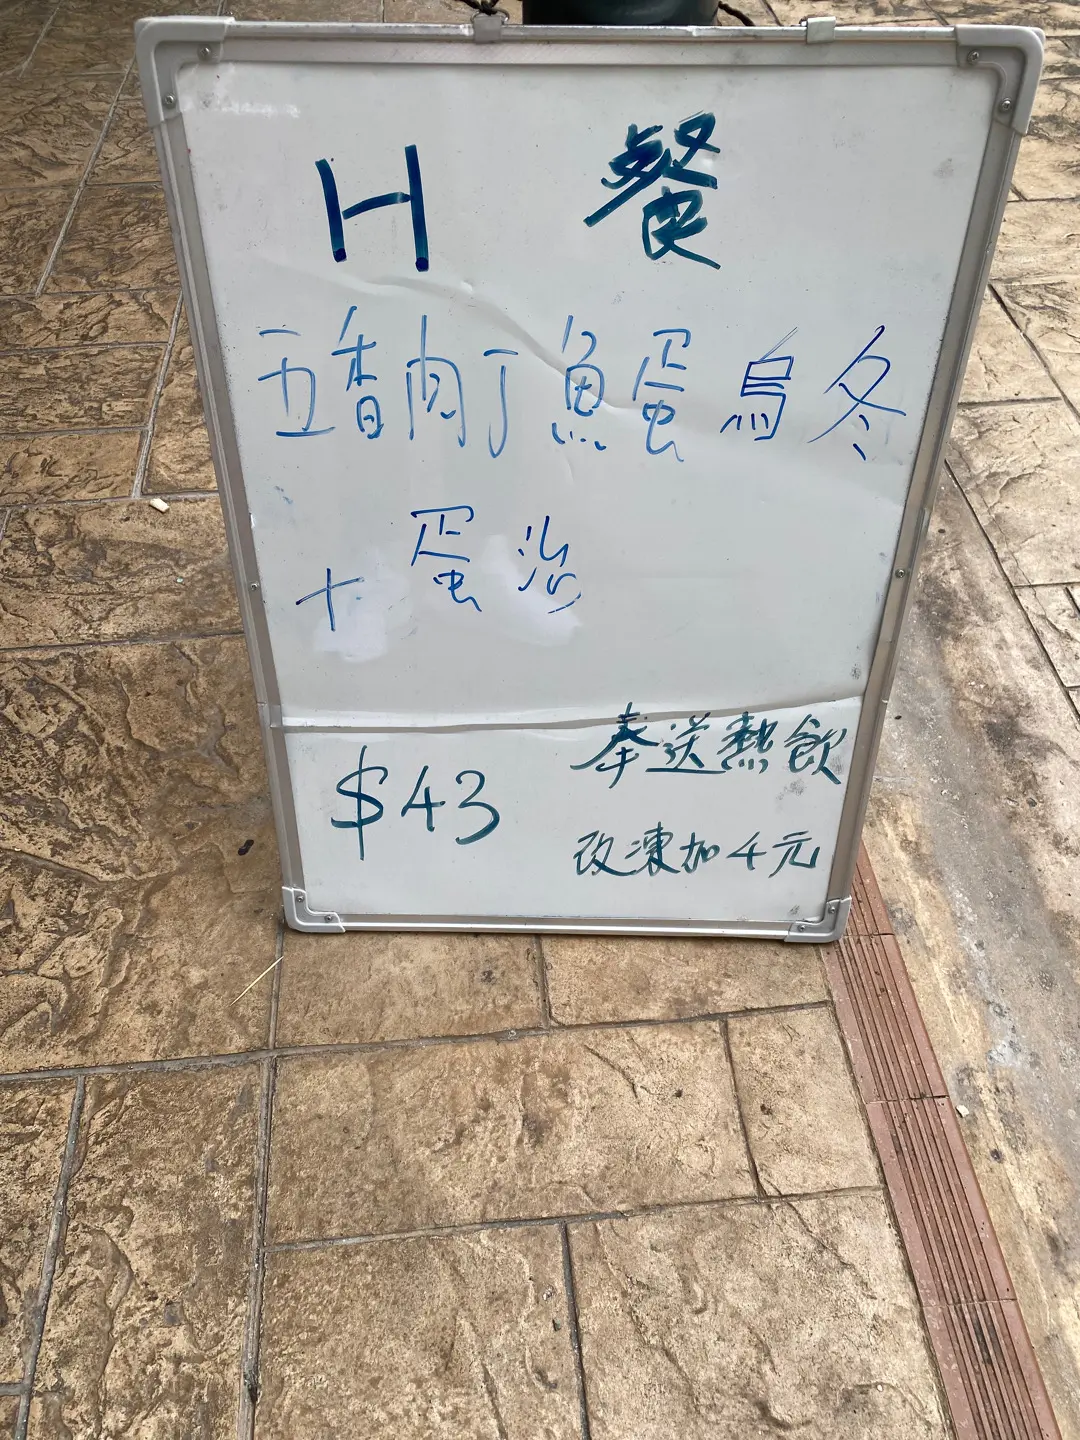 H 餐
五香肉丁魚蛋烏冬
+ 蛋治
$43
奉送熱飲
改凍加4元